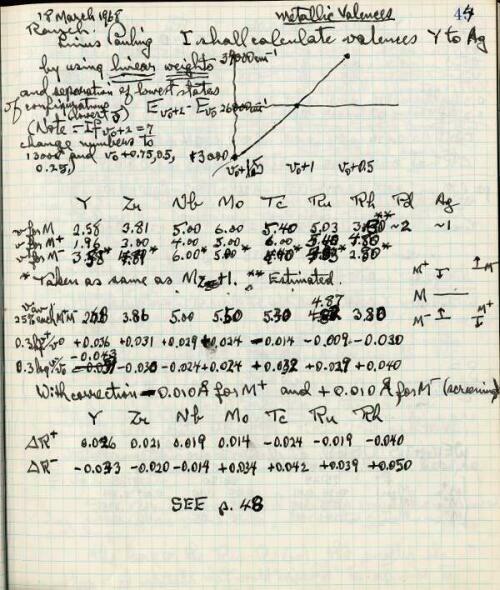 18 March 1968
Metallic Valences
44
Ranch.
Linus Pauling
I shall calculate valences Y to Ag
by using linear weights
39000 cm⁻¹
and separation of lowest states
of configurations
E v₀+2 - E v₀ 26000 cm⁻¹
(lowest J)
(Note - If v₀+2 = 7
change numbers to
13000 and v₀+0.75, 0.5,
0.25,)
13000
v₀+1.5
v₀+1
v₀+0.5
Y Zr Nb Mo Tc Ru Rh Pd Ag
v for M 2.58 3.81 5.00 6.00 5.40 5.03 ** ~2 ~1
v for M⁺ 1.96 3.00 4.00 5.00 6.00 5.40 4.50
v for M⁻ * * 6.00* 5.00 * * 2.80*
* Taken as same as M z+1. ** Estimated.
M⁺ M⁻
M
M⁻ M⁺
4.87
25% each M⁺ M⁻ 3.86 5.00 5.50 5.30 3.80
+0.036 +0.031 +0.029 +0.024 -0.014 -0.009 -0.030
-0.043
-0.030 -0.024 +0.024 +0.032 +0.029 +0.040
With correction -0.010 Å for M⁺ and +0.010 Å for M⁻ (screening)
Y Zr Nb Mo Tc Ru Rh
ΔR⁺ 0.026 0.021 0.019 0.014 -0.024 -0.019 -0.040
ΔR⁻ -0.033 -0.020 -0.014 +0.034 +0.042 +0.039 +0.050
SEE p. 48